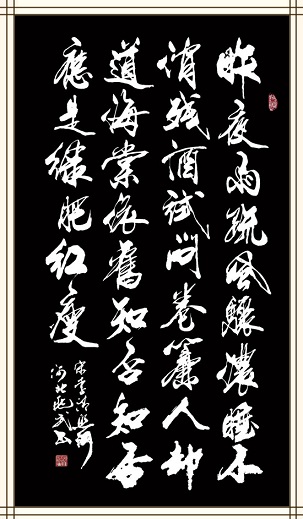 昨夜雨疏風驟濃睡不
消殘酒試問卷簾人却
道海棠依舊知否知否
應是綠肥紅瘦
宋李清照詞
河北